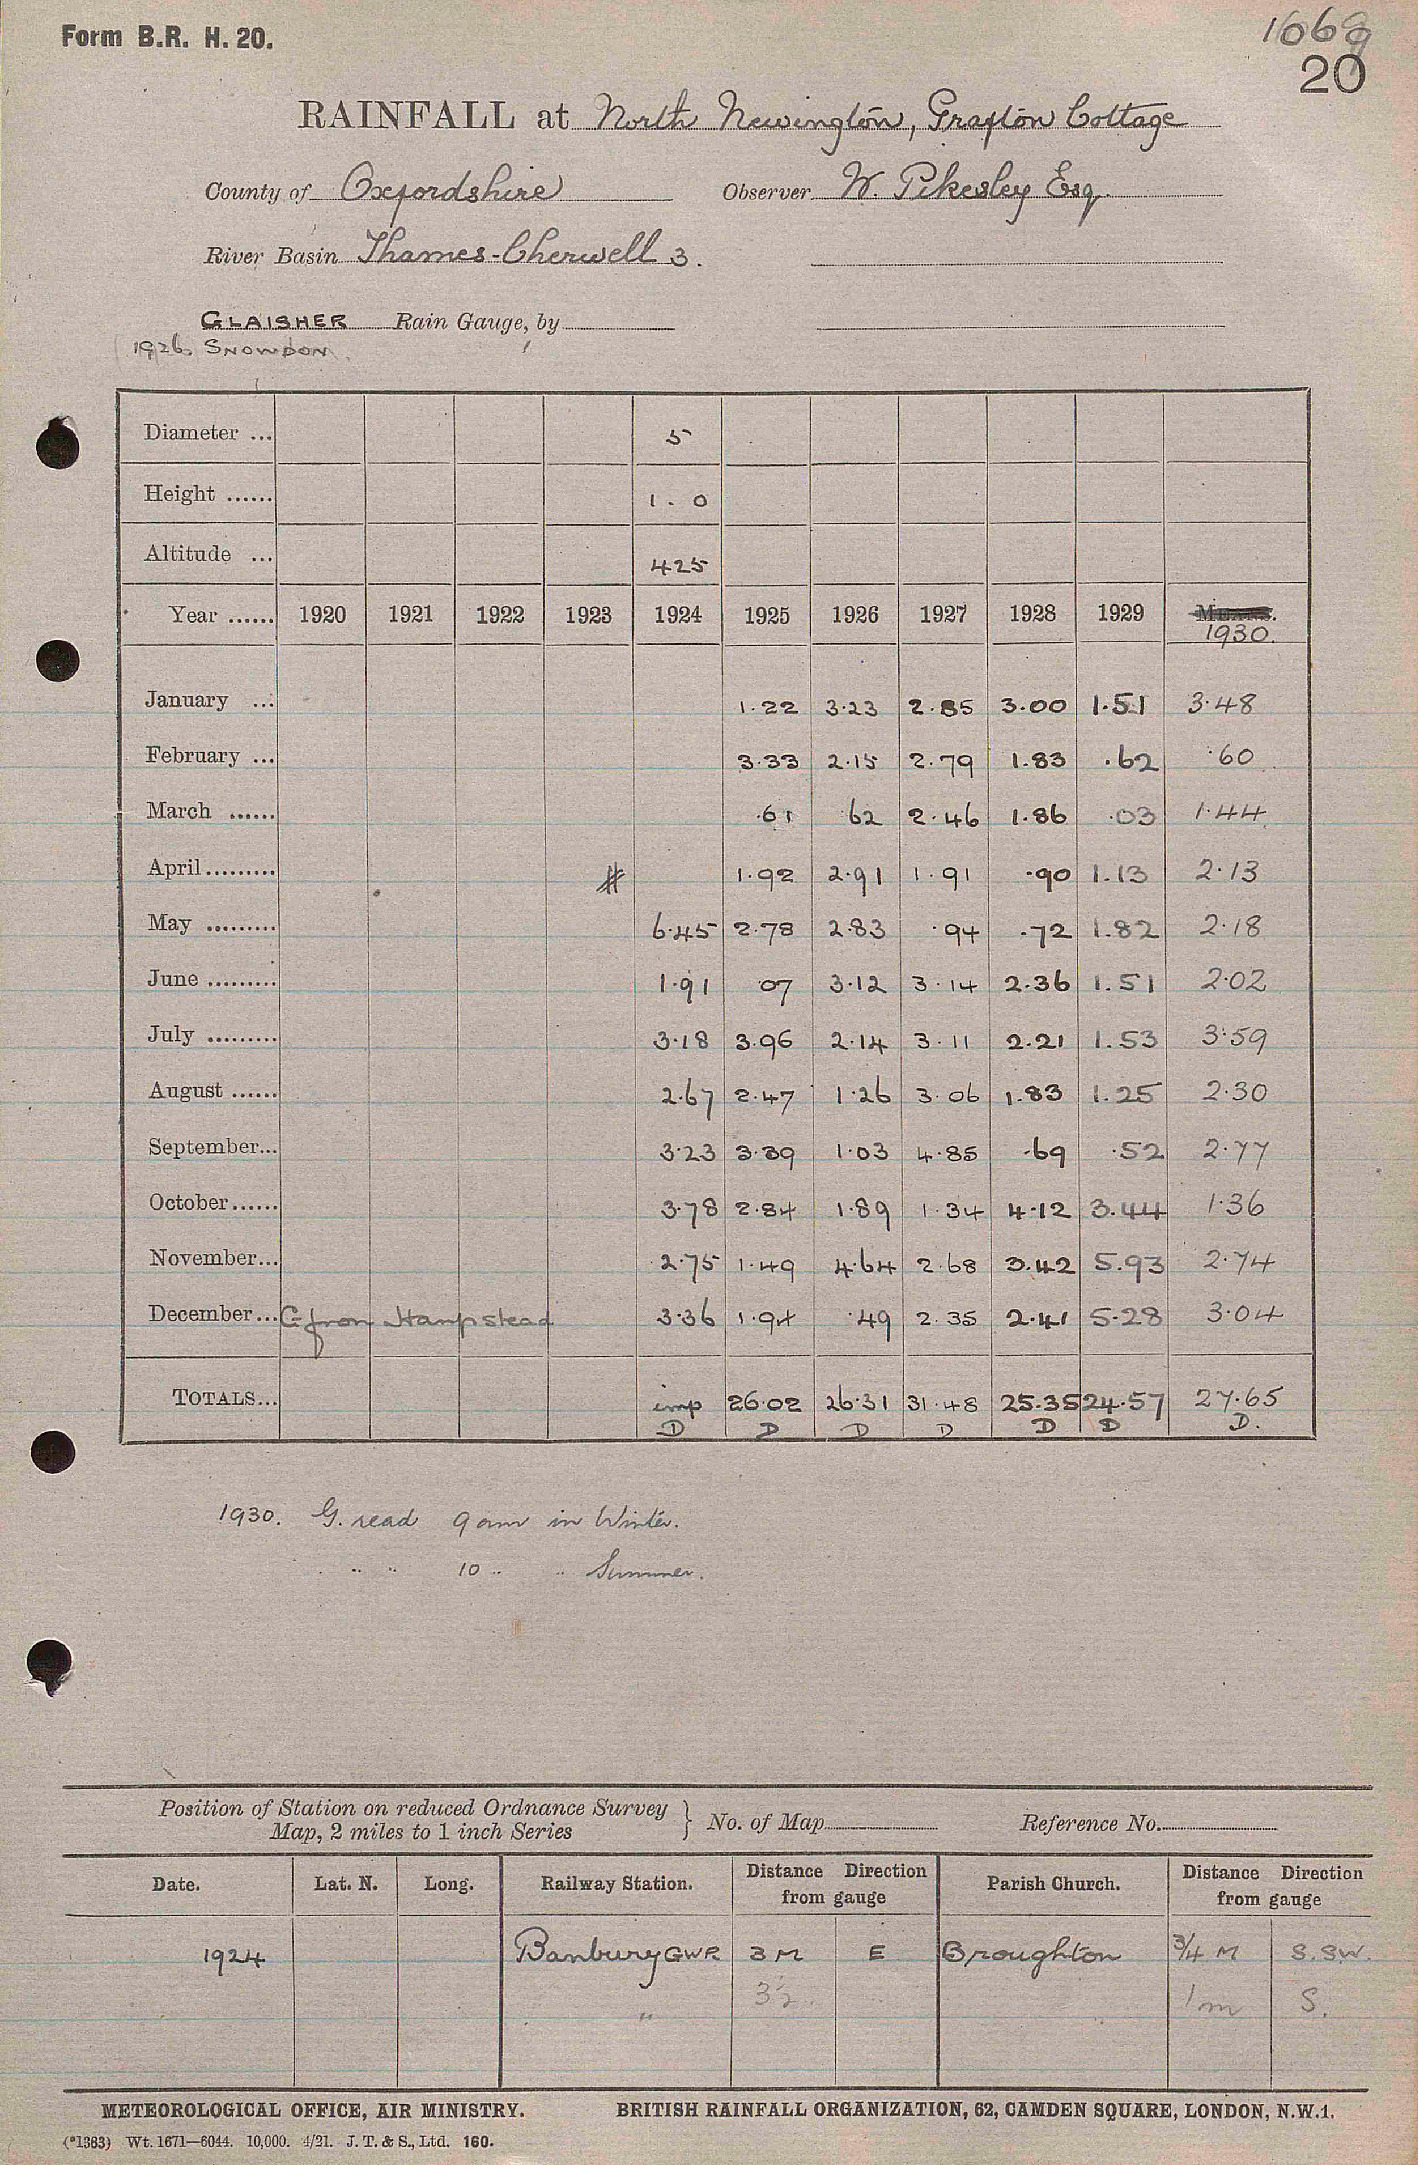 Form B.R. H. 20.
1069
20
RAINFALL at North Newington, Grafton Cottage
County of Oxfordshire Observer W. Pikesley Esq.
River Basin Thames-Cherwell 3.
GLAISHER Rain Gauge, by
1926. SNOWDON
Diameter ... 5
Height ...... 1.0
Altitude ... 425
Year ...... 1920 1921 1922 1923 1924 1925 1926 1927 1928 1929 1930.
January ... 1.22 3.23 2.85 3.00 1.51 3.48
February ... 3.33 2.15 2.79 1.83 .62 .60
March ...... .61 .62 2.46 1.86 .03 1.44
April ......... # 1.92 2.91 1.91 .90 1.13 2.13
May ......... 6.45 2.78 2.83 .94 .72 1.82 2.18
June ......... 1.91 .07 3.12 3.14 2.36 1.51 2.02
July ......... 3.18 3.96 2.14 3.11 2.21 1.53 3.59
August ...... 2.67 2.47 1.26 3.06 1.83 1.25 2.30
September... 3.23 3.39 1.03 4.85 .69 .52 2.77
October...... 3.78 2.84 1.89 1.34 4.12 3.44 1.36
November... 2.75 1.49 4.64 2.68 3.42 5.93 2.74
December... G from Hampstead 3.36 1.94 .49 2.35 2.41 5.28 3.04
TOTALS... imp 26.02 26.31 31.48 25.35 24.57 27.65
D D D D D D D.
1930. G. read 9 am in Winter.
" " 10 " " Summer.
Position of Station on reduced Ordnance Survey
Map, 2 miles to 1 inch Series } No. of Map Reference No.
Date. Lat. N. Long. Railway Station. Distance Direction from gauge Parish Church. Distance Direction from gauge
1924 Banbury GWR 3 M E Broughton 3/4 M S.SW.
" 3½ 1 m S.
METEOROLOGICAL OFFICE, AIR MINISTRY. BRITISH RAINFALL ORGANIZATION, 62, CAMDEN SQUARE, LONDON, N.W.1.
(*1383) Wt. 1671—6044. 10,000. 4/21. J. T. & S., Ltd. 160.